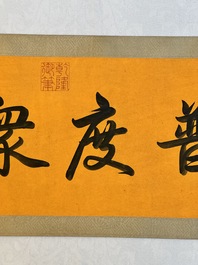 普度衆
乾隆御筆